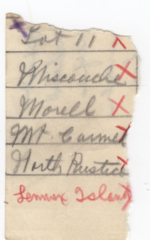 Lot 11 X
Miscouche X
Morell X
Mt. Carmel X
North Rustico X
Lennox Island X